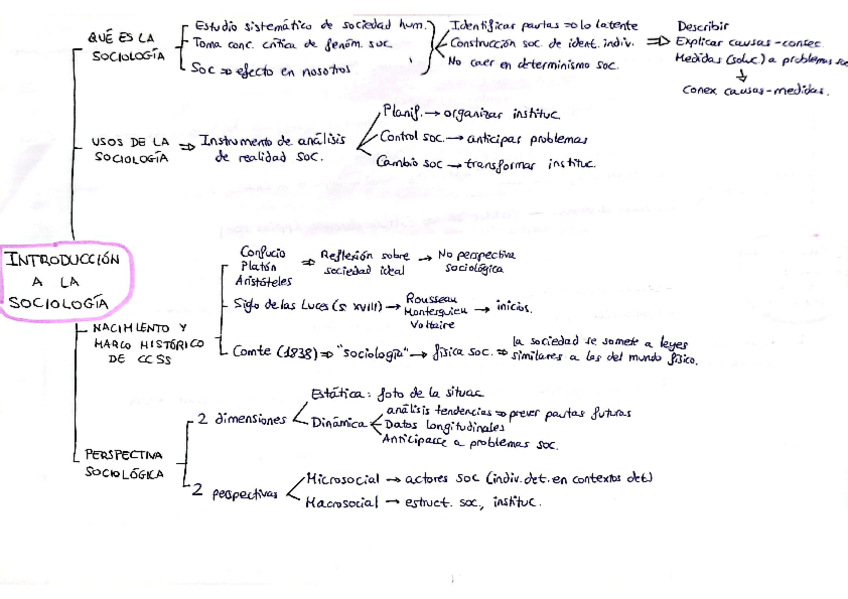 QUÉ ES LA
SOCIOLOGÍA
Estudio sistemático de sociedad hum.
Toma conc. crítica de fenóm. soc.
Soc ⇒ efecto en nosotros
Identificar pautas ⇒ lo latente
Construcción soc. de ident. indiv.
No caer en determinismo soc.
⇒ Describir
Explicar causas-consec.
Medidas (soluc) a problemas soc
↓
Conex causas-medidas.
USOS DE LA
SOCIOLOGÍA
⇒ Instrumento de análisis
de realidad soc.
Planif. → organizar instituc.
Control soc. → anticipar problemas
Cambio soc → transformar instituc.
INTRODUCCIÓN
A LA
SOCIOLOGÍA
NACIMIENTO Y
MARCO HISTÓRICO
DE CCSS
Confucio
Platón
Aristóteles
⇒ Reflexión sobre
sociedad ideal
→ No perspectiva
sociológica
Siglo de las Luces (s. XVIII) →
Rousseau
Montesquieu
Voltaire
→ inicios.
Comte (1838) ⇒ "sociología" → física soc. ⇒
la sociedad se somete a leyes
similares a las del mundo físico.
PERSPECTIVA
SOCIOLÓGICA
2 dimensiones
Estática: foto de la situac
Dinámica
análisis tendencias ⇒ prever pautas futuras
Datos longitudinales
Anticiparse a problemas soc.
2 perspectivas
Microsocial → actores soc (indiv. det. en contextos det)
Macrosocial → estruct. soc., instituc.